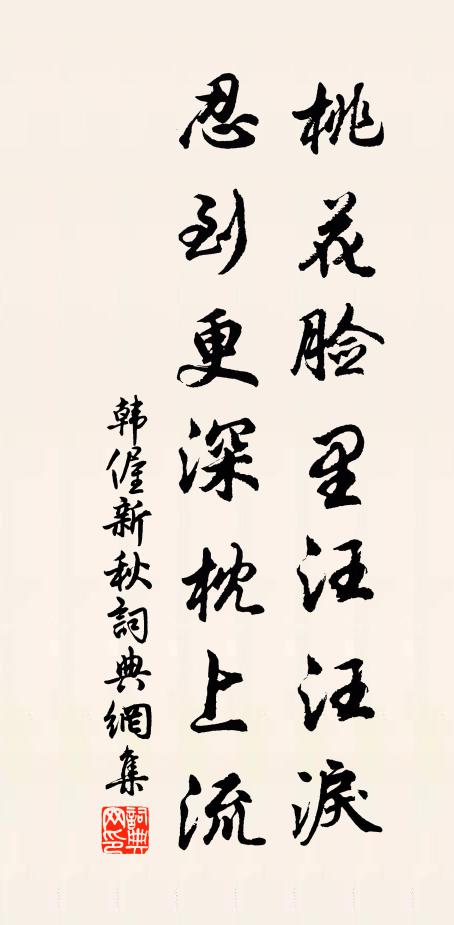 桃花脸里汪汪淚
忍到更深枕上流
韩偓新秋詞典網集
詞典网印